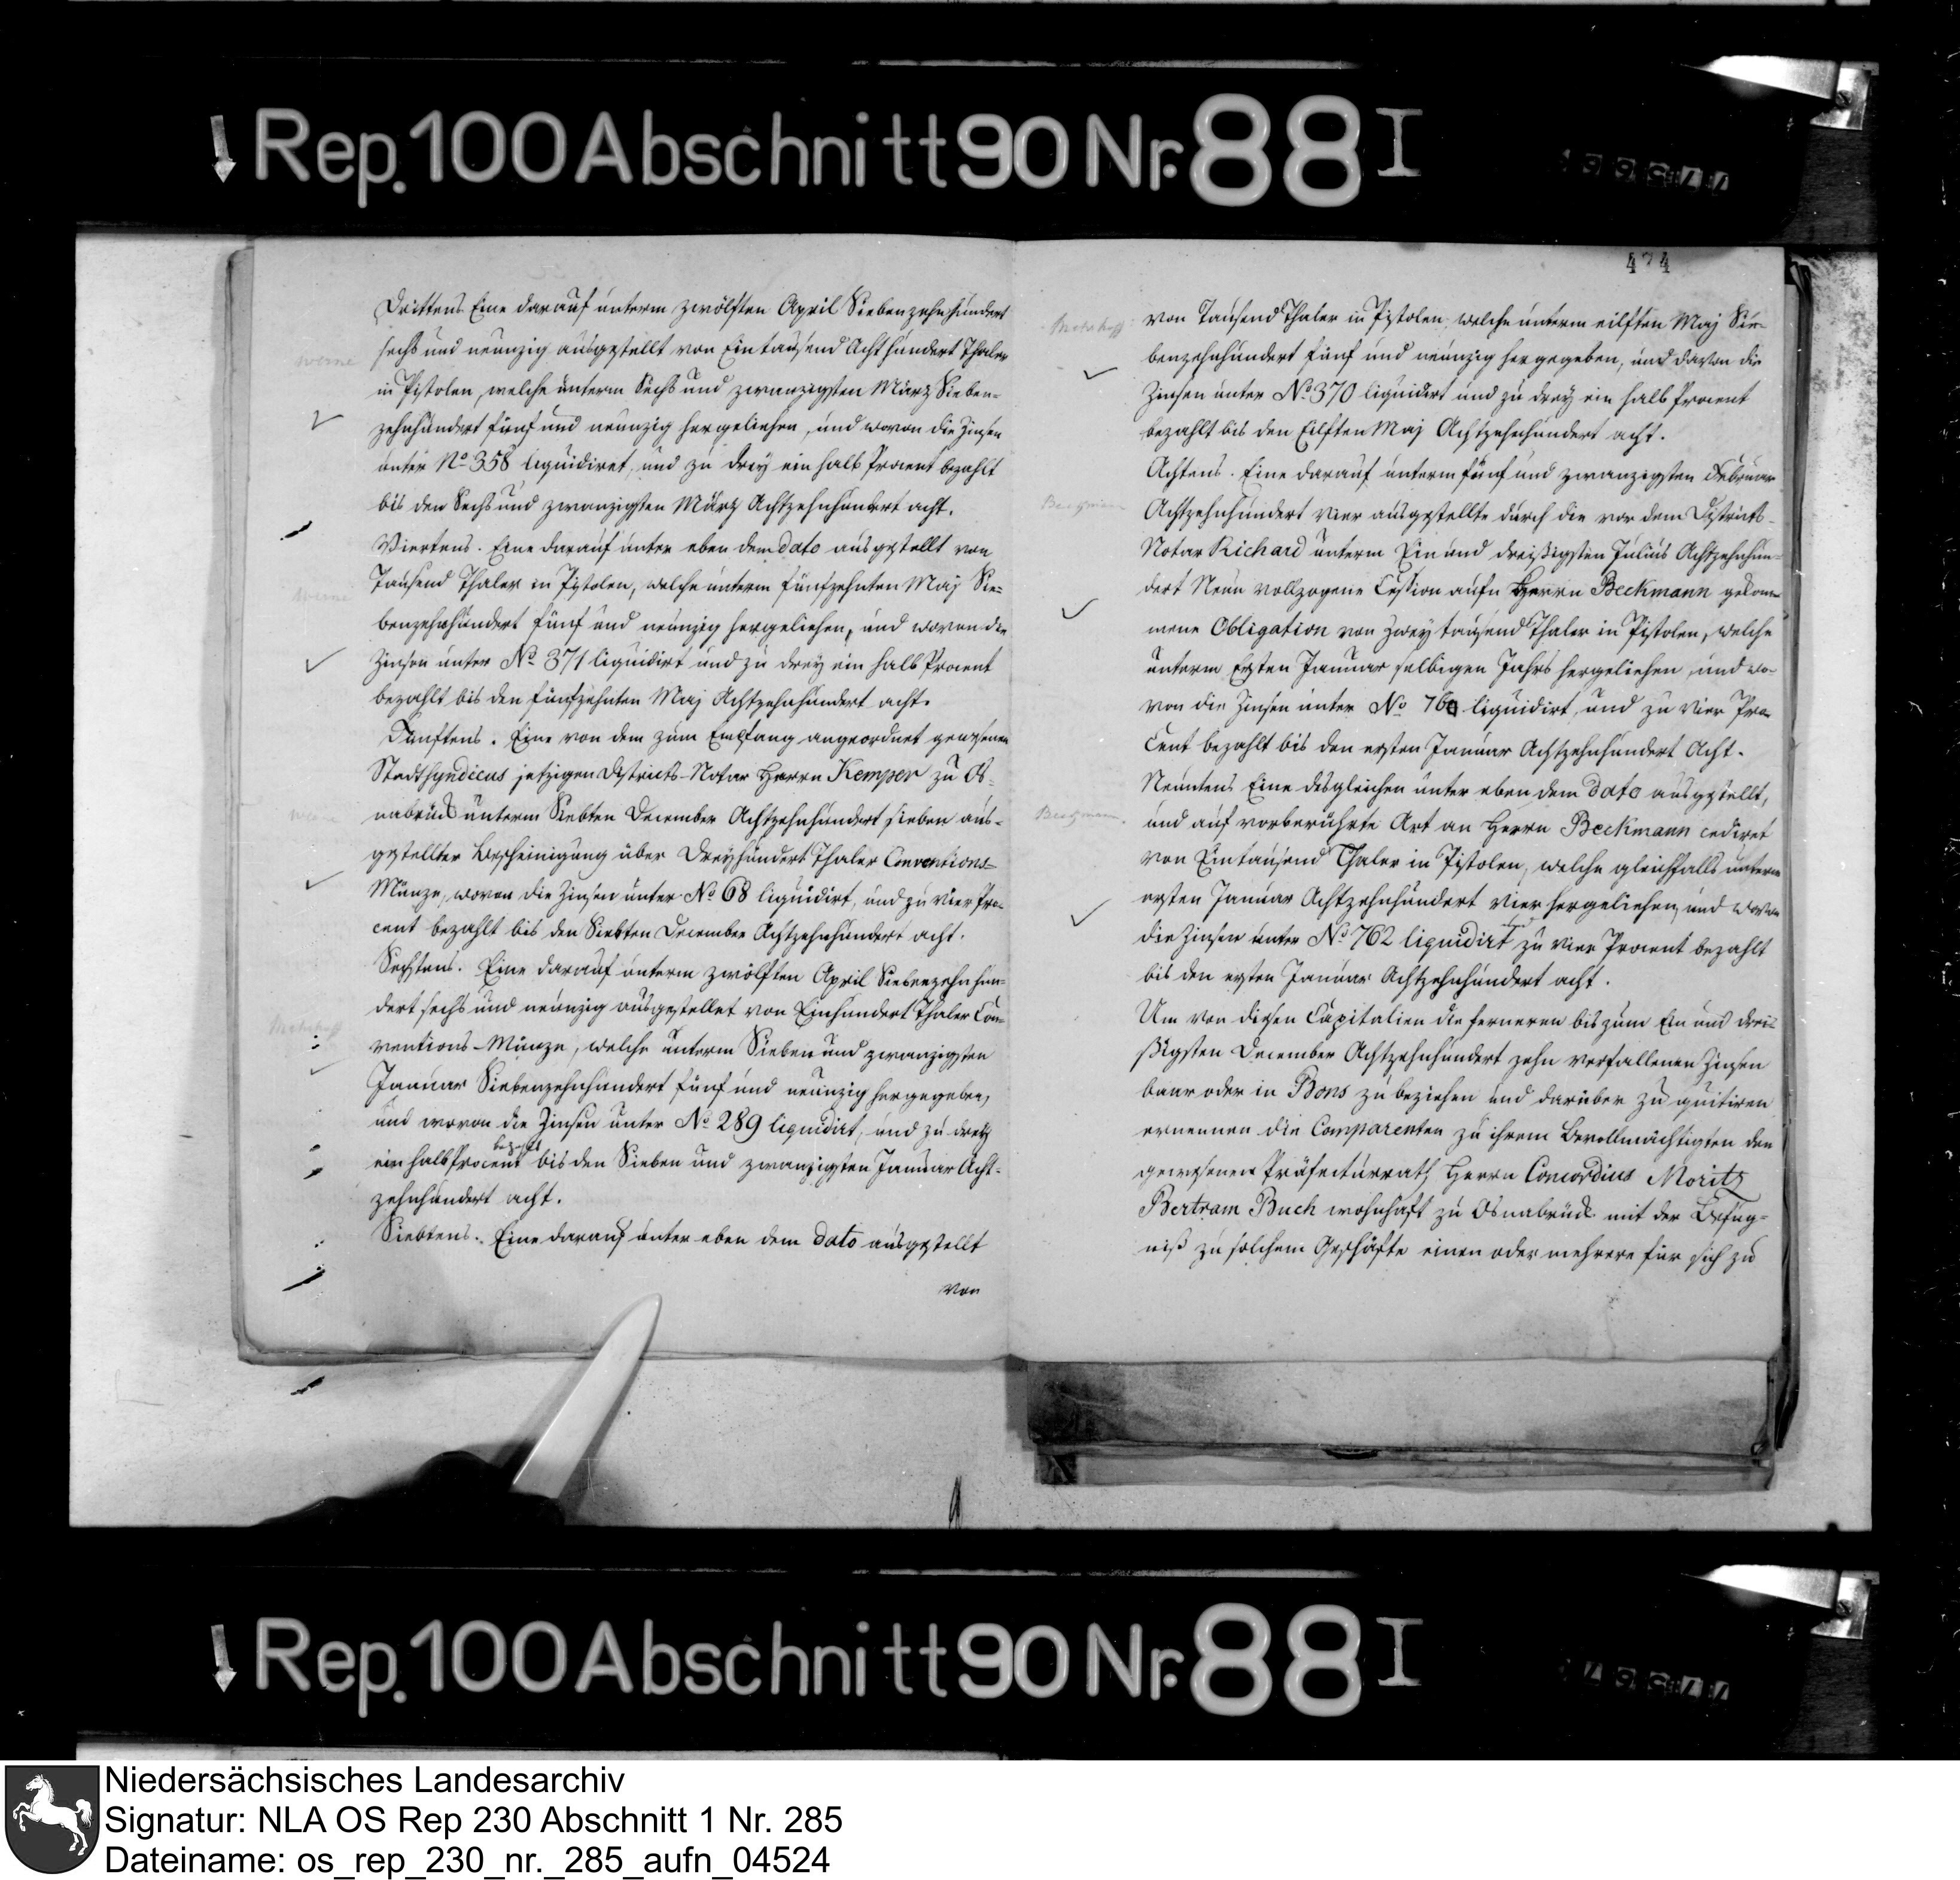 Rep. 100 Abschnitt 90 Nr. 88 I
Drittens Eine darauf unterm zwölften April Siebenzehnhundert
sechs und neunzig ausgestellt von Eintausend Achthundert Thaler
in Pistolen, welche unterm Sechs und zwanzigsten März Sieben-
zehnhundert fünf und neunzig hergeliehen, und wovon die Zinsen
unter No 358 liquidiret, und zu drey ein halb Procent bezahlt
bis den Sechs und zwanzigsten März Achtzehnhundert acht.
Viertens. Eine darauf unter eben dem dato ausgestellt von
Tausend Thaler in Pistolen, welche unterm fünfzehnten Maj Sie-
benzehnhundert fünf und neunzig hergeliehen, und wovon die
Zinsen unter No 371 liquidirt und zu drey ein halb Procent
bezahlt bis den fünfzehnten Maj Achtzehnhundert acht.
Fünftens. Eine von dem zum Empfang angeordnet gewesenen
Stadtsyndicus jetzigen Districts-Notar Herrn Kemper zu Os-
nabrück unterm Siebten December Achtzehnhundert sieben aus-
gestellter Bescheinigung über Dreyhundert Thaler Conventions-
Münze, wovon die Zinsen unter No 68 liquidirt, und zu vier Pro-
cent bezahlt bis den Siebten December Achtzehnhundert acht.
Sechstens. Eine darauf unterm zwölften April Siebenzehnhun-
dert sechs und neunzig ausgestellet von Einhundert Thaler Con-
ventions-Münze, welche unterm Sieben und zwanzigsten
Januar Siebenzehnhundert fünf und neunzig hergegeben,
und wovon die Zinsen unter No 289 liquidirt, und zu drey
ein halb Procent bezahlt bis den Sieben und zwanzigsten Januar Acht-
zehnhundert acht.
Siebtens. Eine darauf unter eben dem dato ausgestellt
von
werne
werne
werne
474
von Tausend Thaler in Pistolen, welche unterm eilften Maj Sie-
benzehnhundert fünf und neunzig hergegeben, und davon die
Zinsen unter No 370 liquidirt und zu drey ein halb Procent
bezahlt bis den Eilften Maj Achtzehnhundert acht.
Achtens. Eine darauf unterm fünf und zwanzigsten Februar
Achtzehnhundert vier ausgestellte durch die vor dem Districts-
Notar Richard unterm Ein und dreißigsten Julius Achtzehnhun-
dert Neun vollzogene Cession aufn Herrn Beckmann gekom-
mene Obligation von Zwey tausend Thaler in Pistolen, welche
unterm Ersten Januar selbigen Jahrs hergeliehen, und wo-
von die Zinsen unter No 760 liquidirt, und zu vier Pro-
cent bezahlt bis den ersten Januar Achtzehnhundert Acht.
Neuntens Eine desgleichen unter eben dem dato ausgestellt,
und auf vorberührte Art an Herrn Beckmann cediret
von Eintausend Thaler in Pistolen, welche gleichfalls unterm
ersten Januar Achtzehnhundert vier hergeliehen, und wovon
die Zinsen unter No 762 liquidirt und zu vier Procent bezahlt
bis den ersten Januar Achtzehnhundert acht.
Um von diesen Capitalien die ferneren bis zum Ein und drei-
ßigsten December Achtzehnhundert zehn verfallenen Zinsen
baar oder in Bons zu beziehen und darüber zu quitiren
ernennen die Comparenten zu ihrem Bevollmächtigten den
gewesenen Präfecturrath Herrn Concordius Moritz
Bertram Buch wohnhaft zu Osnabrück mit der Befug-
niß zu solchem Geschäfte einen oder mehrere für sich zu
Rep. 100 Abschnitt 90 Nr. 88 I
Niedersächsisches Landesarchiv
Signatur: NLA OS Rep 230 Abschnitt 1 Nr. 285
Dateiname: os_rep_230_nr._285_aufn_04524